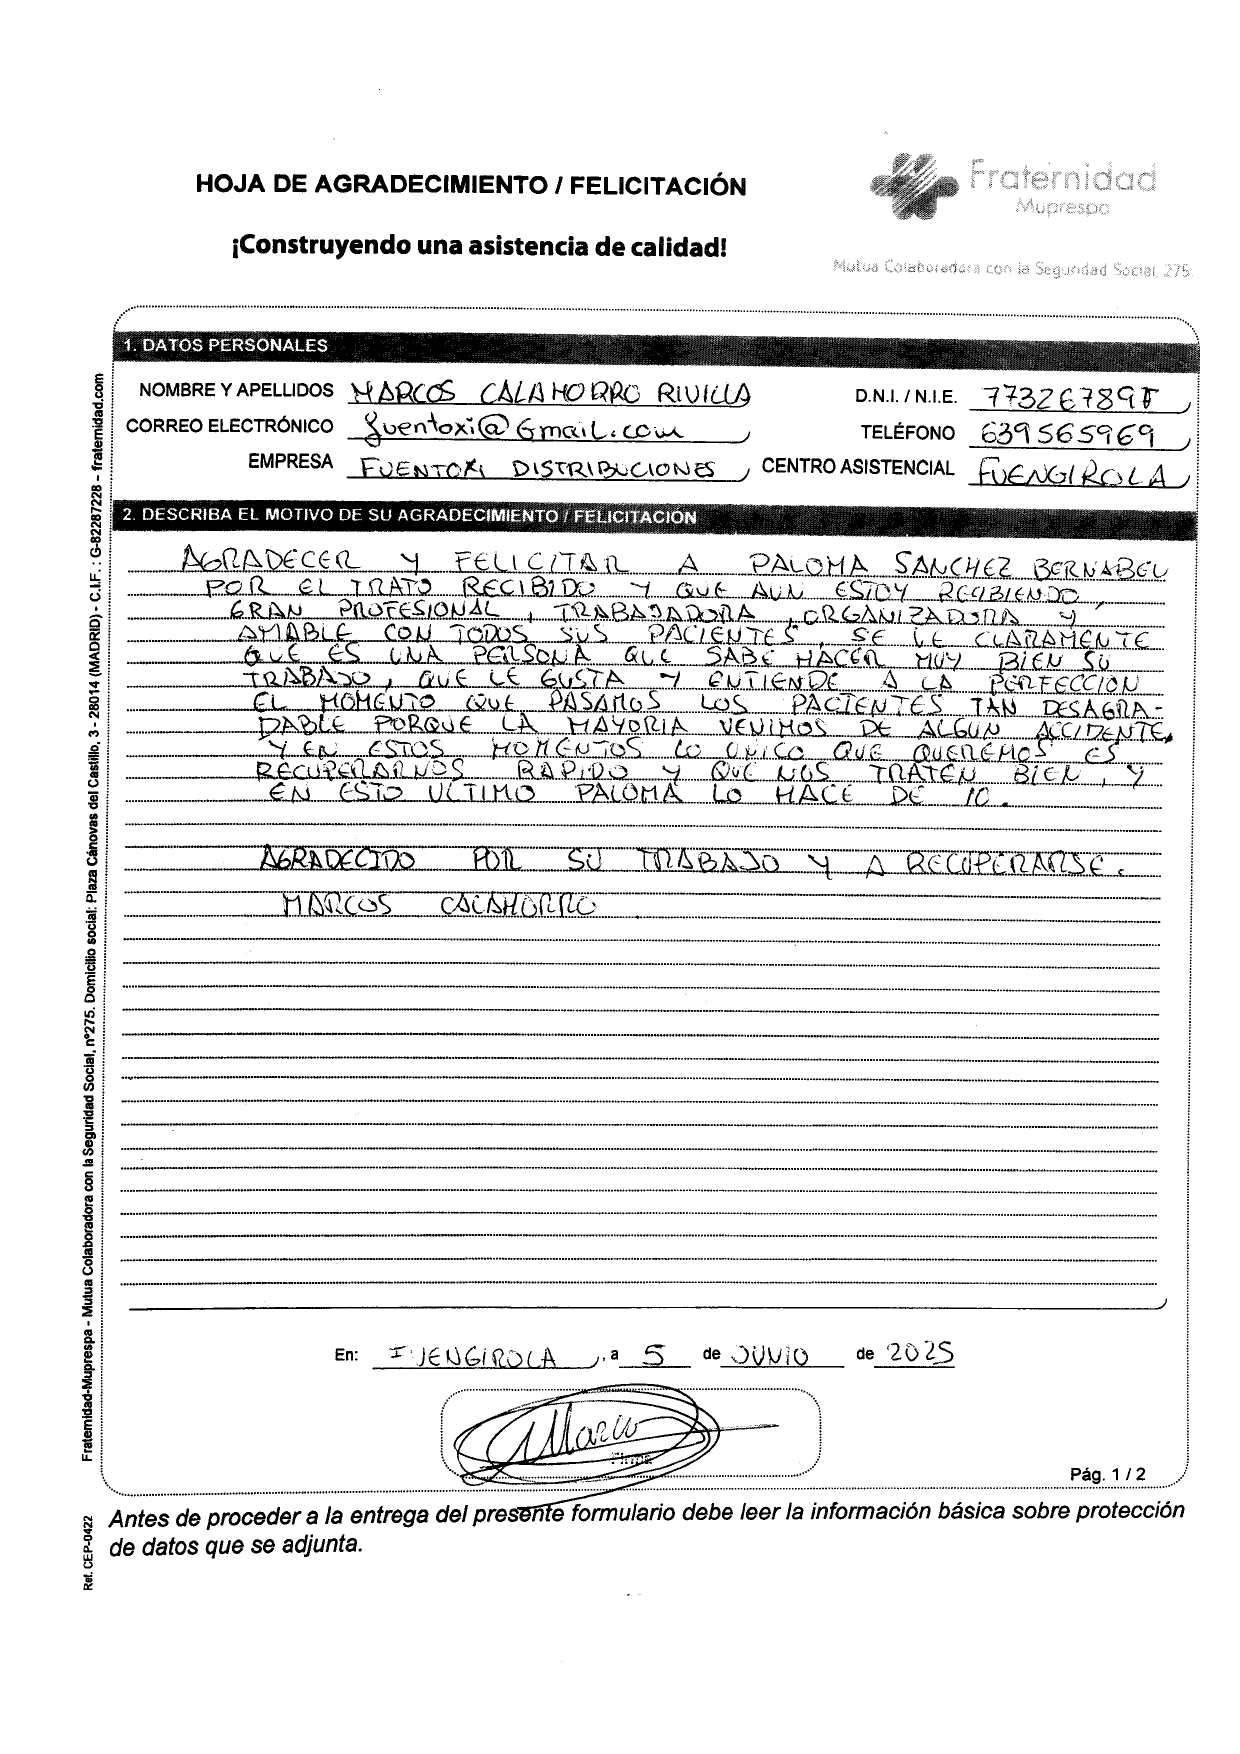 HOJA DE AGRADECIMIENTO / FELICITACIÓN
Fraternidad
Muprespa
¡Construyendo una asistencia de calidad!
Mutua Colaboradora con la Seguridad Social, 275.
1. DATOS PERSONALES
NOMBRE Y APELLIDOS MARCOS CALAHORRO RIVILLA D.N.I. / N.I.E. 77326789
CORREO ELECTRÓNICO fuentoxi@Gmail.com TELÉFONO 639565969
EMPRESA FUENTOXI DISTRIBUCIONES CENTRO ASISTENCIAL FUENGIROLA
2. DESCRIBA EL MOTIVO DE SU AGRADECIMIENTO / FELICITACIÓN
AGRADECER Y FELICITAR A PALOMA SANCHEZ BERNABEU
POR EL TRATO RECIBIDO Y QUE AUN ESTOY RECIBIENDO,
GRAN PROFESIONAL, TRABAJADORA, ORGANIZADORA Y
AMABLE CON TODOS SUS PACIENTES, SE LE CLARAMENTE
QUE ES UNA PERSONA QUE SABE HACER MUY BIEN SU
TRABAJO, QUE LE GUSTA Y ENTIENDE A LA PERFECCION
EL MOMENTO QUE PASAMOS LOS PACIENTES TAN DESAGRA-
DABLE PORQUE LA MAYORIA VENIMOS DE ALGUN ACCIDENTE,
Y EN ESTOS MOMENTOS LO UNICO QUE QUEREMOS ES
RECUPERARNOS RAPIDO Y QUE NOS TRATEN BIEN, Y
EN ESTO ULTIMO PALOMA LO HACE DE 10.
AGRADECIDO POR SU TRABAJO Y A RECUPERARSE.
MARCOS CALAHORRO
En: FUENGIROLA, a 5 de JUNIO de 2025
Marco
Firma
Pág. 1 / 2
Antes de proceder a la entrega del presente formulario debe leer la información básica sobre protección
de datos que se adjunta.
Fraternidad-Muprespa - Mutua Colaboradora con la Seguridad Social, nº275. Domicilio social: Plaza Cánovas del Castillo, 3 - 28014 (MADRID) - C.I.F. : G-82287228 – fraternidad.com
Ref. CEP-0422